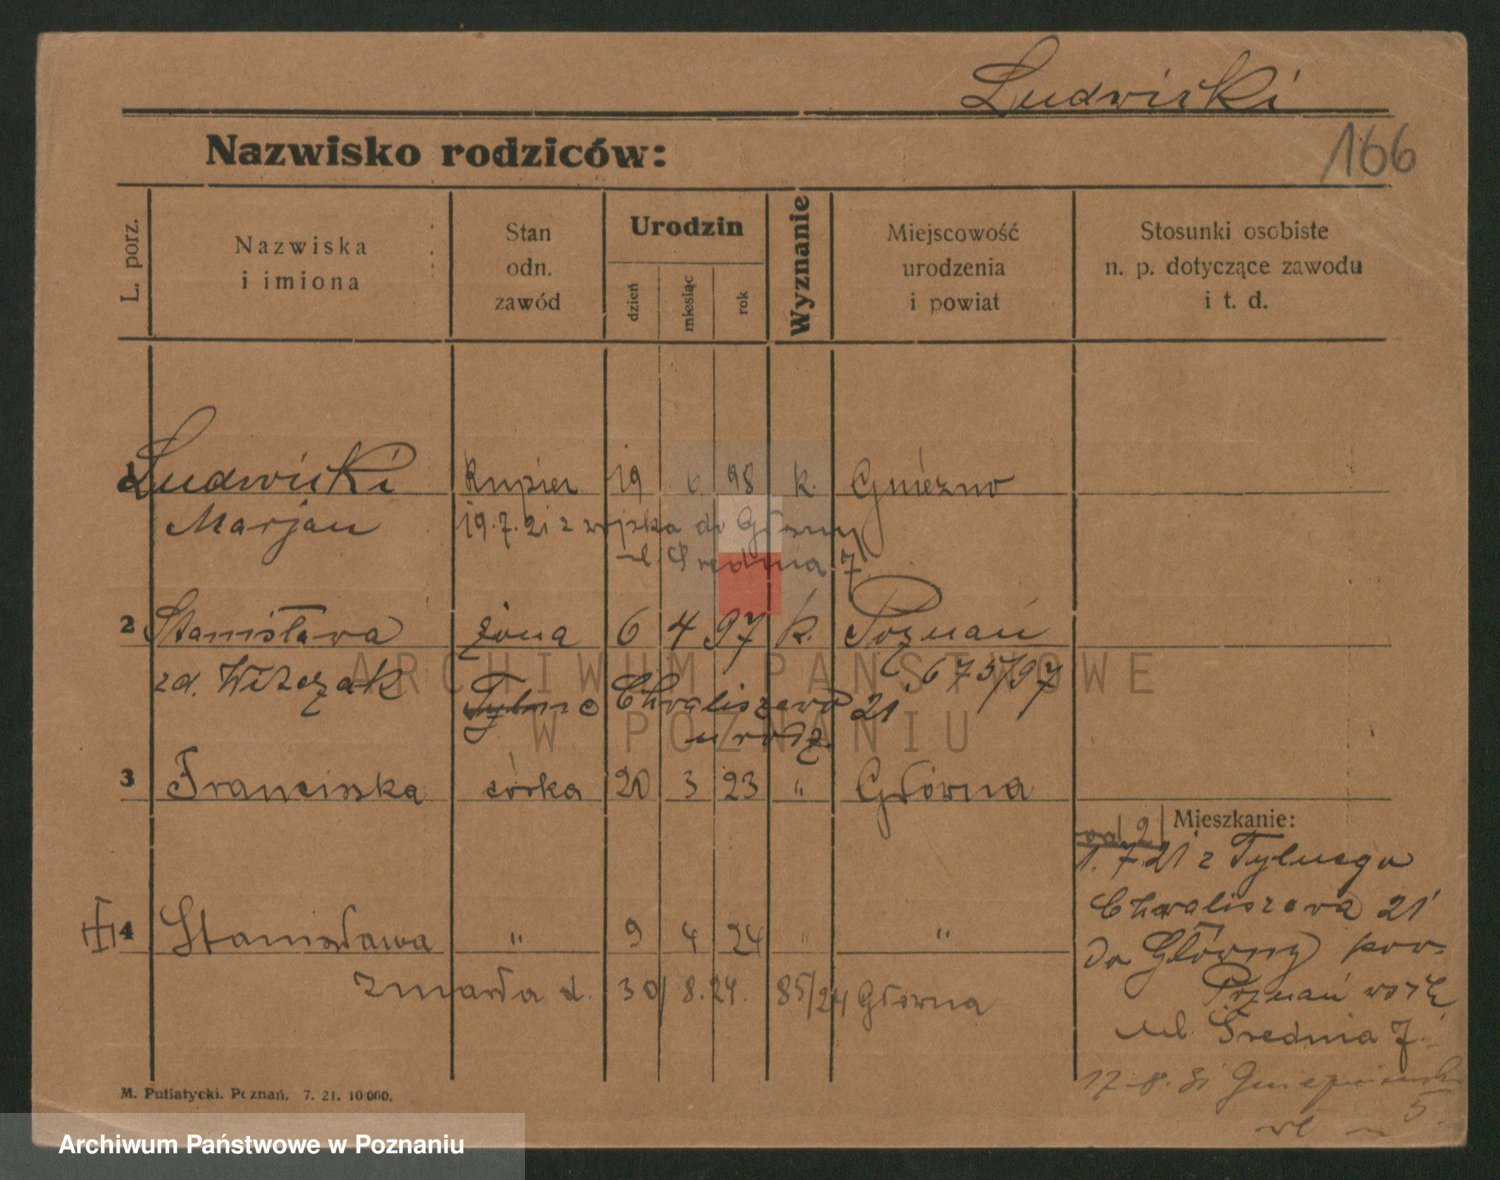 Ludwiski
166
Nazwisko rodziców:
L. porz.
Nazwiska
i imiona
Stan
odn.
zawód
Urodzin
dzień
miesiąc
rok
Wyznanie
Miejscowość
urodzenia
i powiat
Stosunki osobiste
n. p. dotyczące zawodu
i t. d.
1 Ludwiski kupiec 19 6 98 k. Gniézno
Marjan 19.7.21 z wojska do Główny
ul Średnia 7
2 Stanisława żona 6 4 97 k. Poznań
zd. Witczak 675/97
Tylne Chwaliszewo 21
urodz.
3 Franciszka córka 20 3 23 " Główna
Mieszkanie:
od 2
1.7.21 z Tylnego
Chwaliszewa 21
do Główny pow.
Poznań wsch
ul. Średnia 7.
17.8.31
5
4 Stanisława " 9 4 24 " "
zmarła d. 30/8.24. 85/24 Główna
M. Putiatycki, Poznań. 7. 21. 10000.
ARCHIWUM PAŃSTWOWE
W POZNANIU
Archiwum Państwowe w Poznaniu